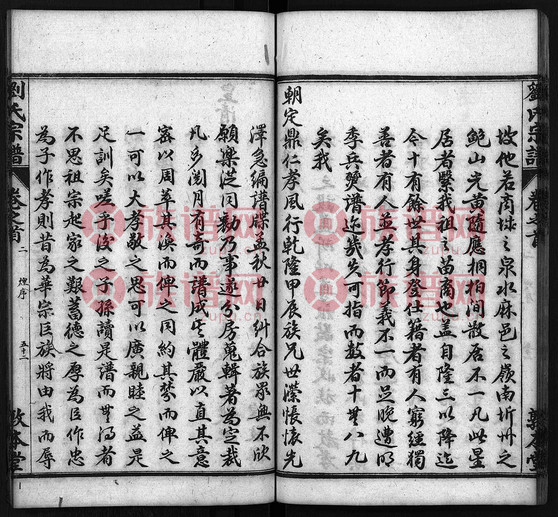 劉氏宗譜
卷之首
敦本堂
故他若商城之泉水麻邑之嶺南圻州之
鮑山光黃隨應桐柏間散居不一凡此星
居者繄我祖之苗裔也蓋自隆三以降迄
今十有餘世其身登仕籍者有人窮經獨
善者有人並孝行節義不一而足晚遭明
季兵燹譜逆幾失可指而數者十世八九
矣我
朝定鼎仁孝風行乾隆甲辰族兄世濚悵懷先
澤急編譜牒孟秋廿日糾合族眾無不欣
願樂從同勷乃事遂分房蒐輯著為定裁
凡多閱月有奇而譜成其體嚴以直其意
密以周萃其渙而俾之同約其繁而俾之
一可以大孝敬之思可以廣親睦之益是
足訓矣嗟乎後之子孫讀是譜而無得者
不思祖宗起家之艱蓄德之厚為臣作忠
為子作孝則昔為華宗巨族將由我而辱
劉氏宗譜
卷之首
二
煙序
五十二
敦本堂
族谱网
族谱网
族谱网
族谱网